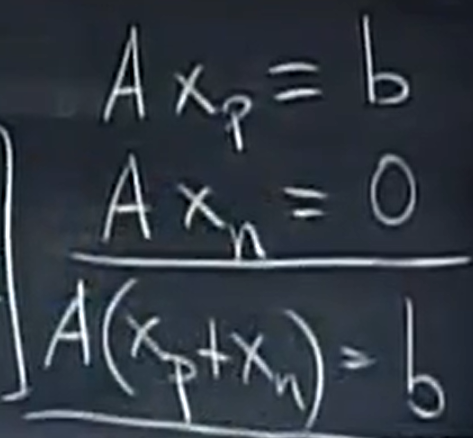 A xₚ = b
A xₙ = 0
A(xₚ+xₙ) = b